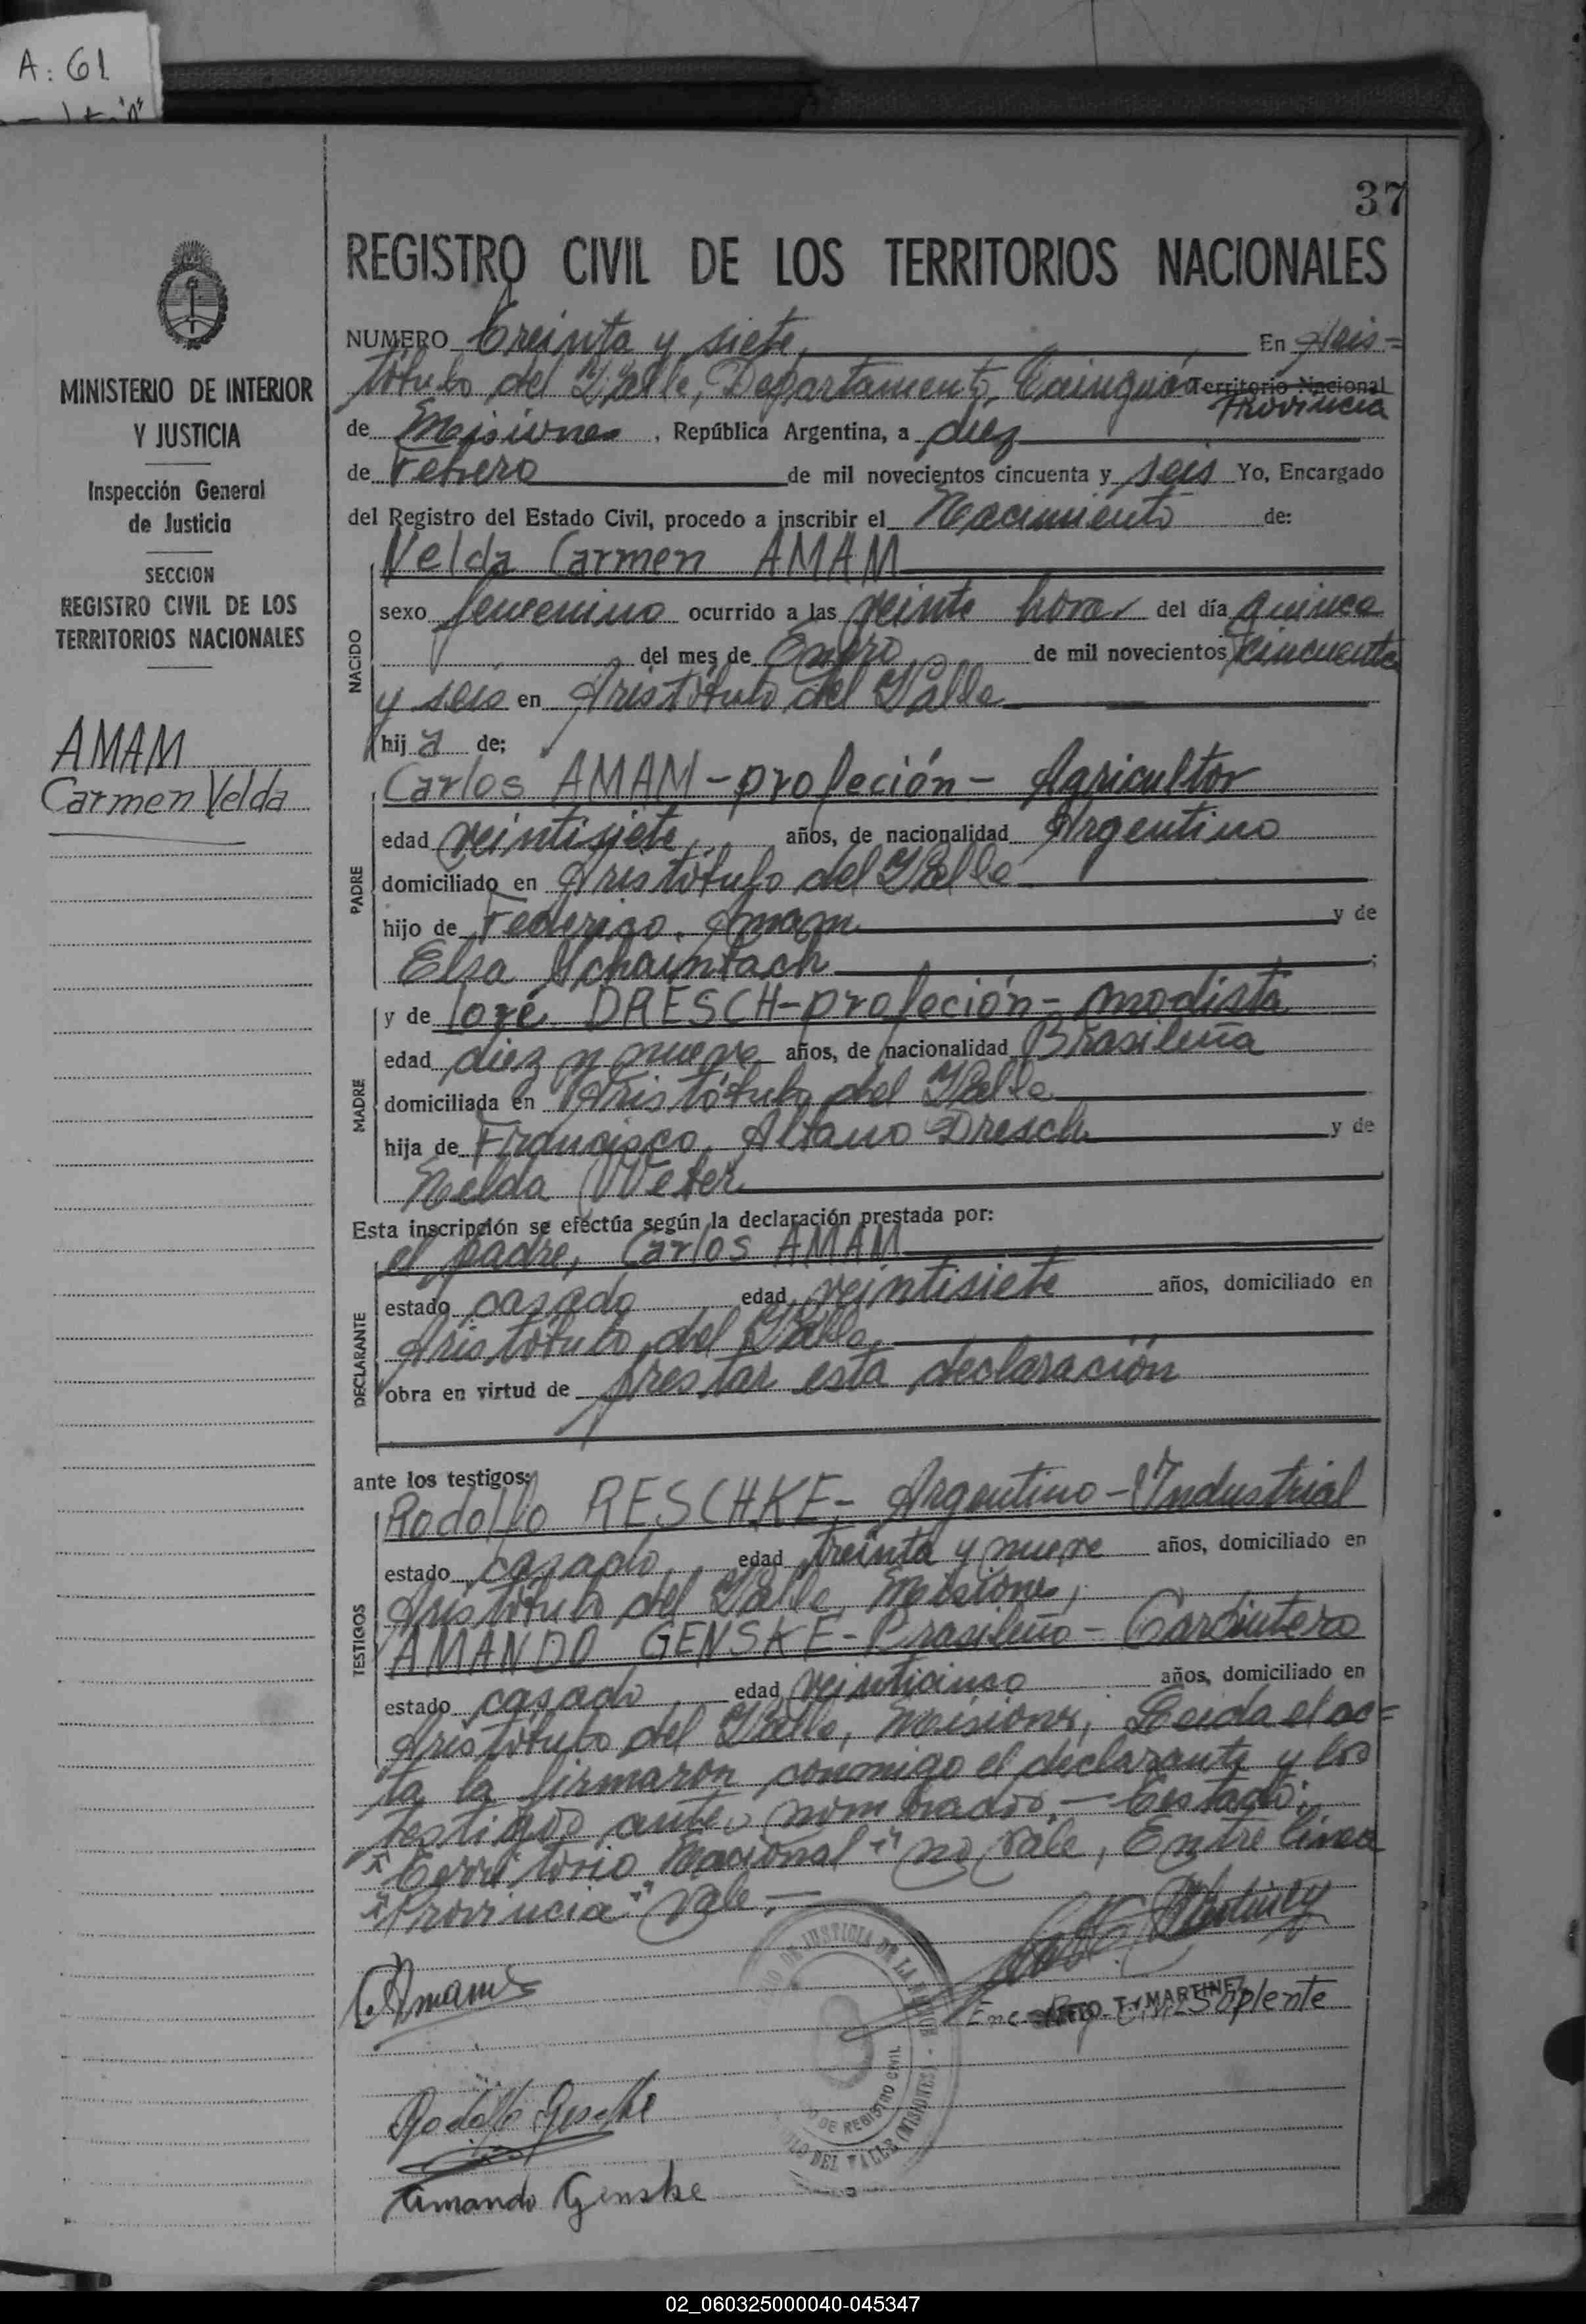 A: 61
37
REGISTRO CIVIL DE LOS TERRITORIOS NACIONALES
MINISTERIO DE INTERIOR
Y JUSTICIA
Inspección General
de Justicia
SECCION
REGISTRO CIVIL DE LOS
TERRITORIOS NACIONALES
AMAM
Carmen Velda
NUMERO Treinta y siete En Aris=
tóbulo del Valle, Departamento Cainguás Territorio Nacional
Provincia
de Misiones, República Argentina, a diez
de Febrero de mil novecientos cincuenta y seis Yo, Encargado
del Registro del Estado Civil, procedo a inscribir el Nacimiento de:
NACIDO
Velda Carmen AMAM
sexo femenino ocurrido a las veinte horas del día quince
del mes de Enero de mil novecientos cincuenta
y seis en Aristóbulo del Valle
hija de;
PADRE
Carlos AMAM - profeción - Agricultor
edad veintisiete años, de nacionalidad Argentino
domiciliado en Aristóbulo del Valle
hijo de Federico Amam y de
Elsa
MADRE
y de DRESCH - profeción - modista
edad diez y nueve años, de nacionalidad Brasileña
domiciliada en Aristóbulo del Valle
hija de Francisco Dresch y de
Nelda
Esta inscripción se efectúa según la declaración prestada por:
DECLARANTE
el padre, Carlos AMAM
estado casado edad veintisiete años, domiciliado en
Aristóbulo del Valle
obra en virtud de prestar esta declaración
ante los testigos:
TESTIGOS
Rodolfo RESCHKE - Argentino - Industrial
estado casado edad treinta y nueve años, domiciliado en
Aristóbulo del Valle, Misiones,
AMANDO GENSKE - Brasileño - Carpintero
estado casado edad veinticinco años, domiciliado en
Aristóbulo del Valle, Misiones, Leida el ac=
ta la firmaron conmigo el declarante y los
testigos ante nombrados. - Testado:
"Territorio Nacional" no vale, Entre linea
"Provincia" vale. -
C. Amam
T. MARTINEZ
Enc. Reg. Civ. Suplente
Rodolfo
Amando Genske
JUSTICIA DE LA
DE REGISTRO CIVIL
DEL VALLE (MISIONES)
02_060325000040-045347